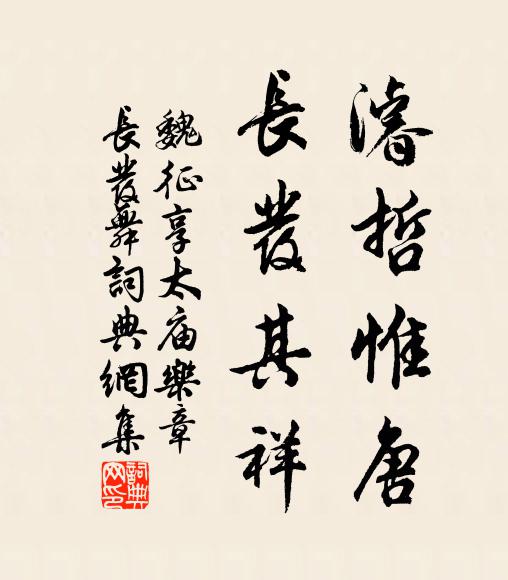 濬哲惟唐
長發其祥
魏征享太庙樂章
長發舞詞典網集
詞典
网印